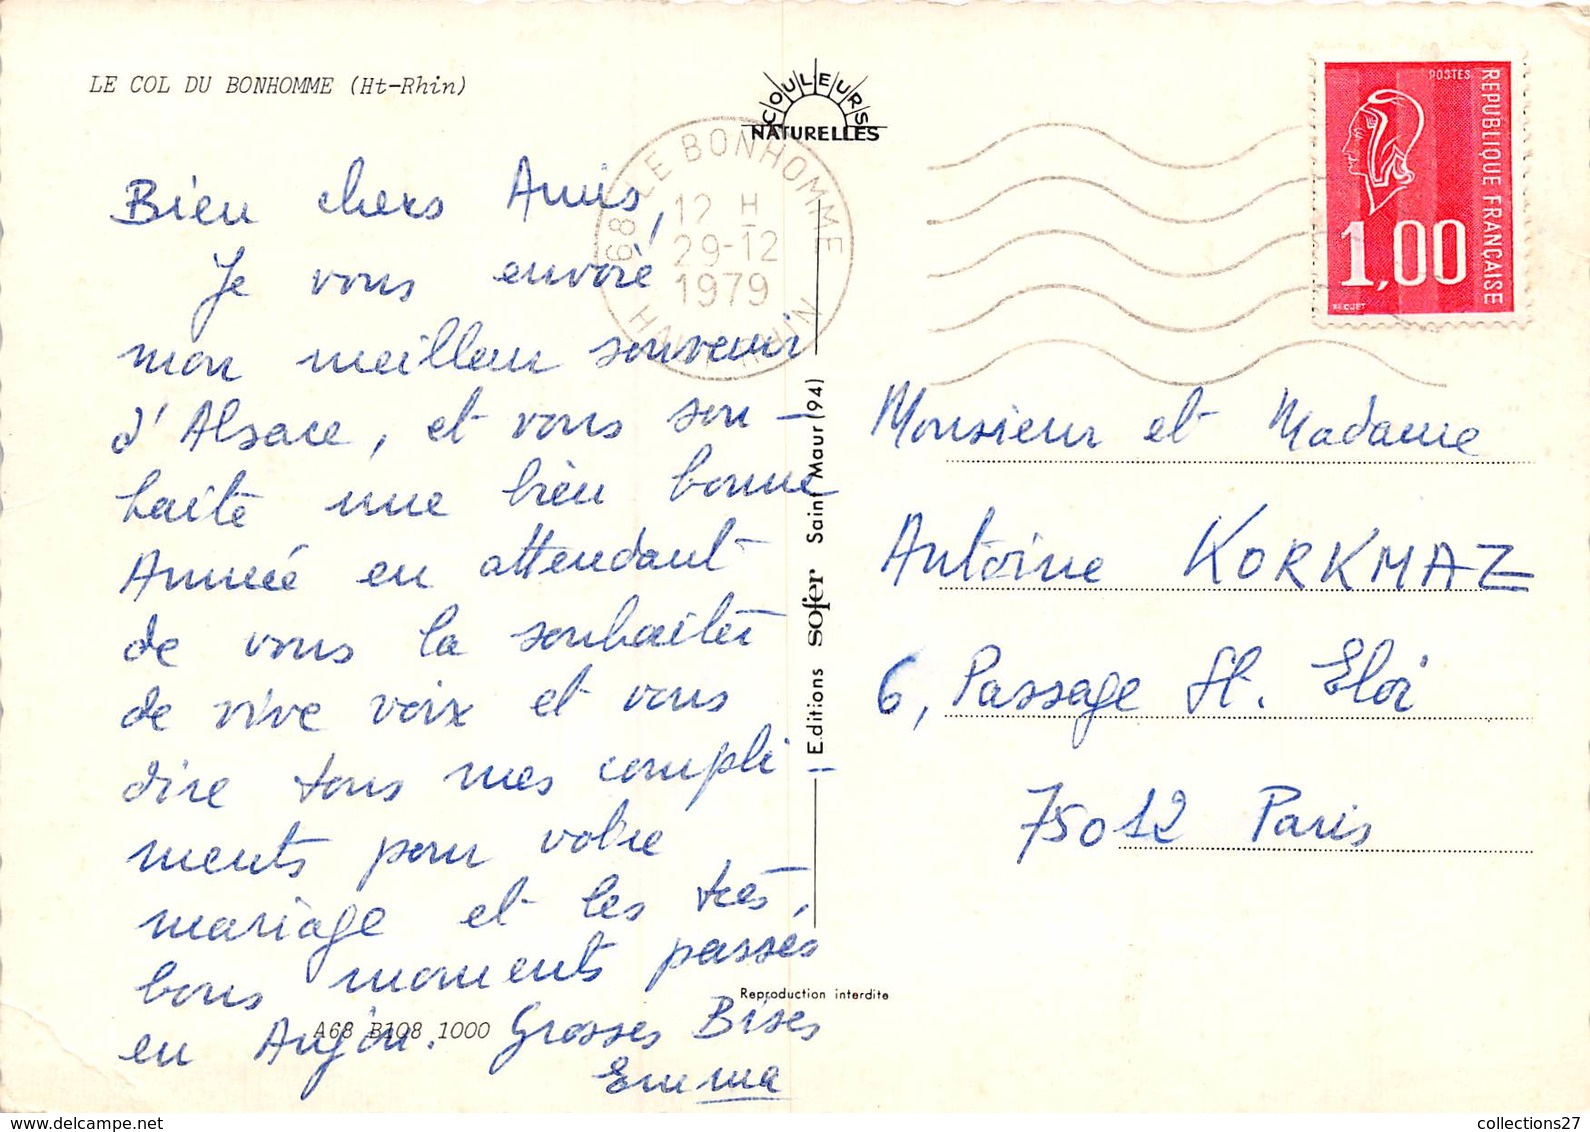 LE COL DU BONHOMME (Ht-Rhin)
COULEURS
NATURELLES
68 LE BONHOMME
12 H
29-12
1979
HAUT-RHIN
POSTES
REPUBLIQUE FRANÇAISE
1,00
BEQUET
Bien chers Amis,
Je vous envoie
mon meilleur souvenir
d'Alsace, et vous sou-
haite une bien bonne
Année en attendant
de vous la souhaiter
de vive voix et vous
dire tous mes compli
ments pour votre
mariage et les très,
bons moments passés
en Anjou. Grosses Bises
Emma
Monsieur et Madame
Antoine KORKMAZ
6, Passage St. Eloi
75012 Paris
Editions sofer Saint Maur (94)
Reproduction interdite
A68 B108 1000
collections27